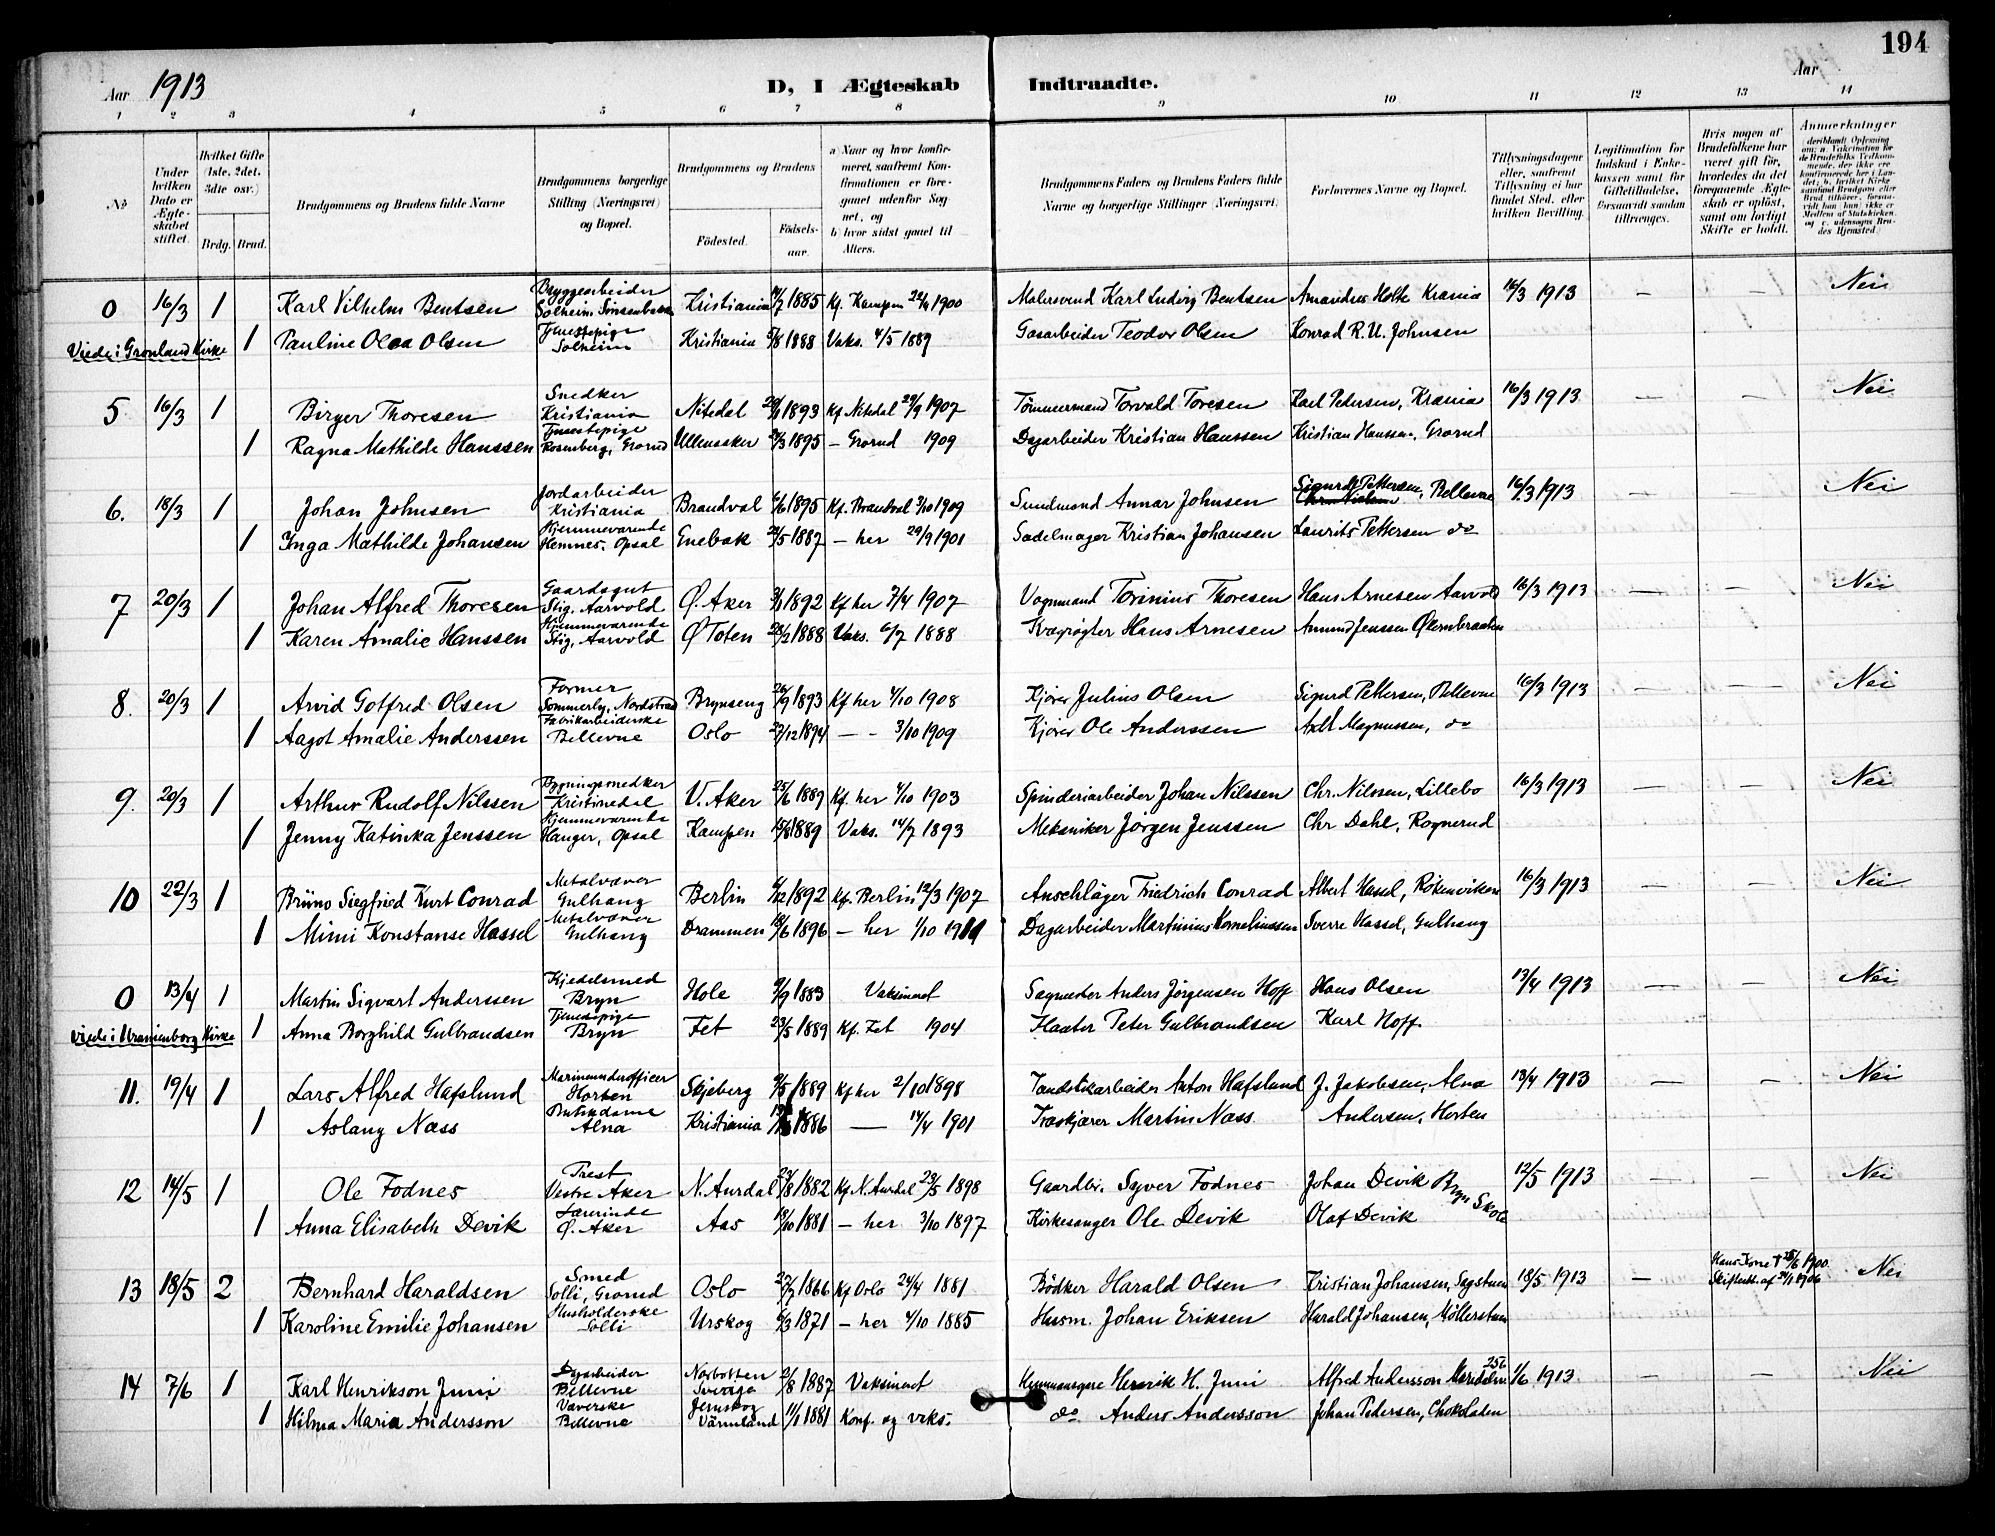 194
Aar 1913 D, I Ægteskab Indtraadte. Aar
1 2 3 4 5 6 7 8 9 10 11 12 13 14
No
Under hvilken Dato er Ægteskabet stiftet.
Hvilket Gifte (1ste, 2det, 3die osv.)
Brdg. Brud.
Brudgommens og Brudens fulde Navne
Brudgommens borgerlige Stilling (Næringsvei) og Bopæl.
Brudgommens og Brudens
Fødested. Fødselsaar.
a) Naar og hvor konfirmeret, saafremt Konfirmationen er foregaaet udenfor Sognet, og
b) hvor sidst gaaet til Alters.
Brudgommens Faders og Brudens Faders fulde Navne og borgerlige Stillinger (Næringsvei)
Forlovernes Navne og Bopæl.
Tillysningsdagene eller, saafremt Tillysning ei har fundet Sted, efter hvilken Bevilling.
Legitimation for Indskud i Enkekassen samt for Giftetilladelse, forsaavidt saadan tiltrænges.
Hvis nogen af Brudefolkene har været gift før, hvorledes da det foregaaende Ægteskab er opløst, samt om lovligt Skifte er holdt.
Anmærkninger
0 16/3 1 Karl Vilhelm Bentsen Bryggearbeider Solheim Kristiania 1885 Kf. Kampen 1900 Malersvend Karl Ludvig Bentsen Amandus Holte Krania 16/3 1913 — — Nei
Viede i Grønland Kirke 1 Pauline Olea Olsen Tjenestepige Solheim Kristiania 5/8 1888 Vaks. 4/5 1889 Gasarbeider Teodor Olsen Konrad R. U. Johnsen
5 16/3 1 Birger Thoresen Snedker Kristiania Nitedal 1893 Kf Nitedal 29/9 1907 Tømmermand Torvald Toresen Karl Pedersen, Krania 16/3 1913 — — Nei
1 Ragna Mathilde Hanssen Tjenestepige Rosenberg, Grorud Ullensaker 1895 — Grorud 1909 Dagarbeider Kristian Hanssen Kristian Hanssen, Grorud
6. 18/3 1 Johan Johnsen Jordarbeider Kristiania Brandval 6/6 1895 Kf. Brandval 3/10 1909 Annar Johnsen Sigurd Pettersen, Bellevue 16/3 1913 — — Nei
1 Inga Mathilde Johansen Hjemmeværende Hemnes, Opsal Enebak 1887 — her 29/9 1901 Sadelmager Kristian Johansen Laurits Pettersen do
7 20/3 1 Johan Alfred Thoresen Gaardsgut Stig, Aarvold Ø. Aker 3/1 1892 Kf her 7/4 1907 Vognmand Torinius Thoresen Hans Arnesen Aarvold 16/3 1913 — — Nei
1 Karen Amalie Hanssen Hjemmeværende Stig, Aarvold Ø Toten 28/2 1888 Vaks. 6/7 1888 Kvægrøgter Hans Arnesen Amund Jenssen Ølernbraaten
8. 20/3 1 Arvid Gotfred Olsen Former Sommerly, Nordstrand Brynseng 26/9 1893 Kf her 4/10 1908 Kjører Julius Olsen Sigurd Pettersen, Bellevue 16/3 1913 — — Nei
1 Aagot Amalie Anderssen Fabrikarbeiderske Bellevue Oslo 27/12 1894 — - 3/10 1909 Kjører Ole Anderssen Axel Magnussen, do
9. 20/3 1 Arthur Rudolf Nilssen Bygningssnedker Kristinedal V. Aker 25/6 1889 Kf. her 4/10 1903 Spinderiarbeider Johan Nilssen Chr. Nilssen, Lillebo 16/3 1913 — — Nei
1 Jenny Katinka Jenssen Hjemmeværende Hauger, Opsal Kampen 15/8 1889 Vaks. 14/7 1893 Mekaniker Jørgen Jenssen Chr Dahl, Rognerud
10 22/3 1 Brüno Siegfried Kurt Conrad Metalvæver Gulhaug Berlin 1892 Kf. Berlin 12/3 1907 Anschläger Friedrich Conrad Albert Hassel, Røkenviken 16/3 1913 — — Nei
1 Mimi Konstanse Hassel Metalvæver Gulhaug Drammen 18/6 1896 — her 1/10 1911 Dagarbeider Martinius Korneliussen Sverre Hassel, Gulhaug
0 13/4 1 Martin Sigvart Anderssen Kjedelsmed Bryn Hole 9/9 1883 Vaksineret Sagmester Anders Jørgensen Hoff Hans Olsen 13/4 1913 — — Nei
Viede i Uranienborg Kirke 1 Anna Borghild Gulbrandsen Tjenestepige Bryn Fet 23/5 1889 Kf. Fet 1904 Peter Gulbrandsen Karl Hoff.
11. 19/4 1 Lars Alfred Hafslund Marineunderofficer Horten Skjeberg 9/5 1889 Kf her 2/10 1898 Tandstikarbeider Anton Hafslund J. Jakobsen, Alna 13/4 1913 — — Nei
1 Aslaug Næss Butikdame Alna Kristiania 1886 — 14/4 1901 Træskjærer Martin Næss. Andersen, Horten
12 14/5 1 Ole Fodnes Prest Vestre Aker N. Aurdal 23/8 1882 Kf N. Aurdal 29/5 1898 Gaardbr. Syver Fodnes Johan Devik Bryn Skole 12/5 1913 — — Nei
1 Anna Elisabeth Devik Lærerinde Ø. Aker Aas 18/10 1881 — her 3/10 1897 Kirkesanger Ole Devik Olaf Devik
13 18/5 2 Bernhard Haraldsen Smed Solli, Grorud Oslo 1866 Kf Oslo 24/4 1881 Bødker Harald Olsen Kristian Johansen, Sagstuen 18/5 1913 — Hans Kone † 25/6 1900. Skifteatt. af 1906 Nei
1 Karoline Emilie Johansen Husholderske Solli Urskog 6/3 1871 — her 4/10 1885 Husm. Johan Eriksen Harald Johansen, Möllerstuen
14 7/6 1 Karl Henrikson Juni Dagarbeider Bellevue Norbotten Sverige 2/8 1887 Vaksineret Hemmansegere Henrik H. Juni Alfred Andersson Mariedalsv. 256 1/6 1913 — — Nei
1 Hilma Maria Andersson Væverske Bellevue Jernskog Värmland 11/1 1881 Konf. og vaks. do Anders Andersson Johan Pedersen, Chokoladen